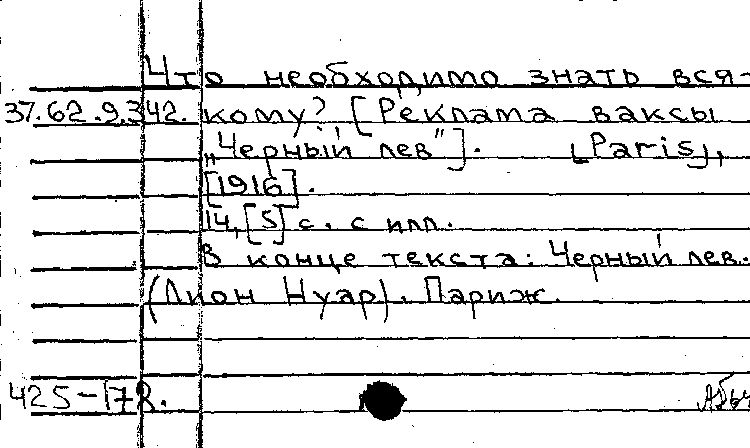 Что необходимо знать вся-
37.62.9.342. кому? [Реклама ваксы
„Черный лев"]. [Paris],
[1916].
14,[5] с. с илл.
В конце текста: Черный лев.
(Лион Нуар). Париж.
425-178.